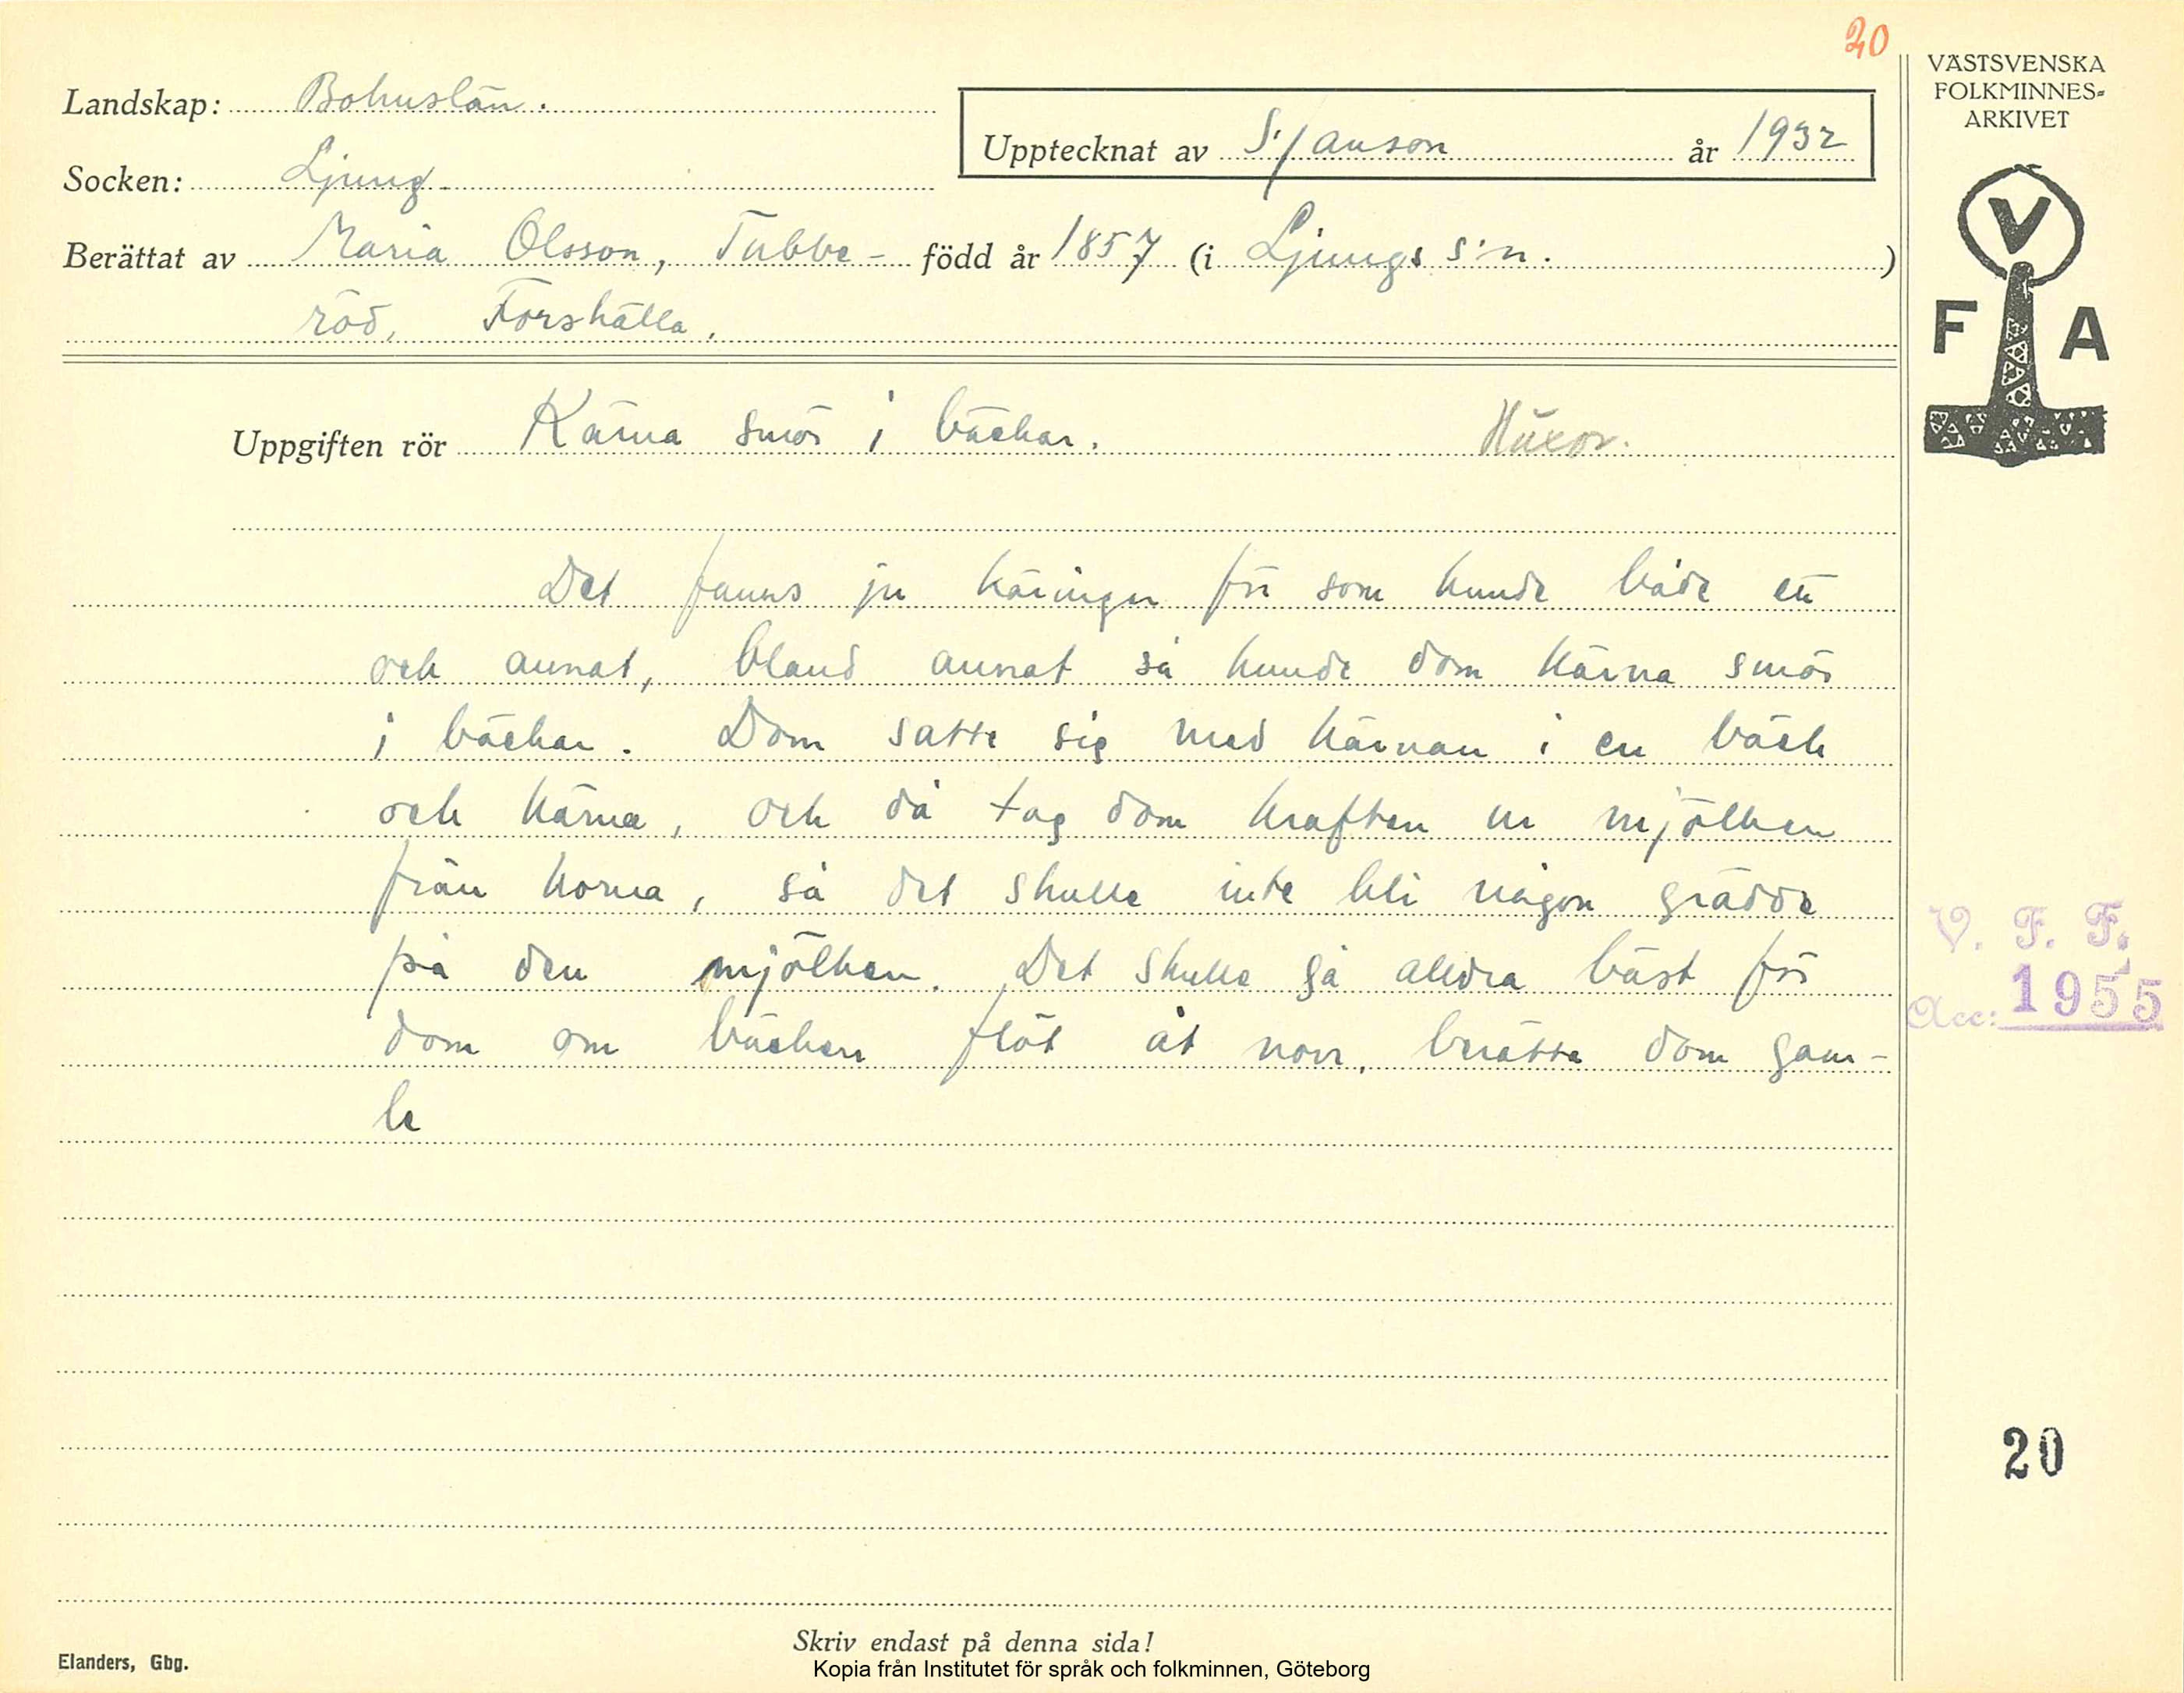 20
VÄSTSVENSKA
FOLKMINNES=
ARKIVET
Landskap: Bohuslän.
Upptecknat av S. Janson år 1932
Socken: Ljung.
Berättat av Maria Olsson, Tubbe- född år 1857 (i Ljungs s:n. )
röd, Forshälla.
V
F A
Uppgiften rör Kärna smör i bäckar. Häxor.
Det fanns ju käringer för som kunde både ett
och annat, bland annat så kunde dom kärna smör
i bäckar. Dom satte sig med kärnan i en bäck
och kärna, och då tog dom kraften ur mjölken
från korna, så det skulle inte bli någon grädde
på den mjölken. Det skulle gå alldra bäst för
dom om bäcken flöt åt norr, berätta dom gam-
le
V. F. F.
Acc: 1955
20
Skriv endast på denna sida!
Elanders, Gbg.
Kopia från Institutet för språk och folkminnen, Göteborg